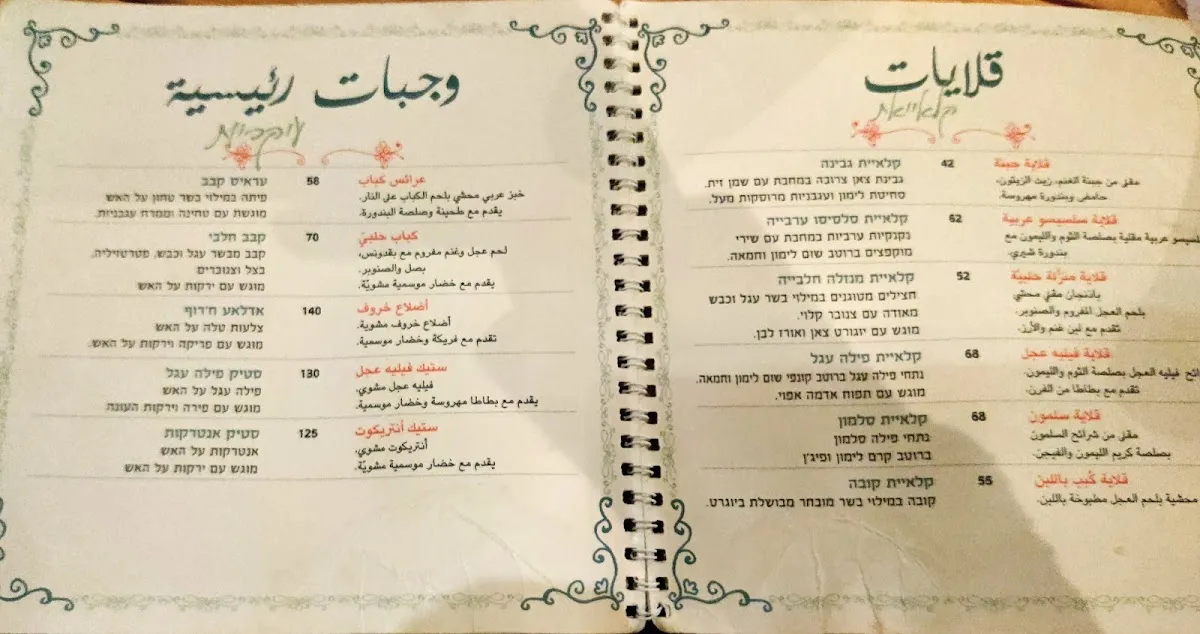 قلايات
קלאייאת
قلاية جبنة
42
קלאיית גבינה
مقلى من جبنة الغنم، زيت الزيتون،
حامض وبندورة مهروسة.
גבינת צאן צרובה במחבת עם שמן זית.
סחיטת לימון ועגבניות מרוסקות מעל.
قلاية سلسيسو عربية
62
קלאיית סלסיסו ערבייה
عربية مقلية بصلصة الثوم والليمون مع
بندورة شيري.
נקנקיות ערביות במחבת עם שירי
מוקפצים ברוטב שום לימון וחמאה.
قلاية منزلة حلبية
52
קלאיית מנזלה חלבייה
باذنجان مقلي محشي
بلحم العجل المفروم والصنوبر.
تقدم مع لبن غنم والأرز.
חצילים מטוגנים במילוי בשר עגל וכבש
מאודה עם צנובר קלוי.
מוגש עם יוגורט צאן ואורז לבן.
قلاية فيليه عجل
68
קלאיית פילה עגל
فيليه العجل بصلصة الثوم والليمون.
تقدم مع بطاطا من الفرن.
נתחי פילה עגל ברוטב קונפי שום לימון וחמאה.
מוגש עם תפוח אדמה אפוי.
قلاية سلمون
68
קלאיית סלמון
مقلى من شرائح السلمون
بصلصة كريم الليمون والفيجن.
נתחי פילה סלמון
ברוטב קרם לימון ופיג'ן
قلاية كُبب باللبن
55
קלאיית קובה
محشية بلحم العجل مطبوخة باللبن.
קובה במילוי בשר מובחר מבושלת ביוגרט.
وجبات رئيسية
עיקריות
عرائس كباب
58
עראיס קבב
خبز عربي محشي بلحم الكباب على النار.
يقدم مع طحينة وصلصة البندورة.
פיתה במילוי בשר טחון על האש
מוגשת עם טחינה וממרח עגבניות.
كباب حلبيّ
70
קבב חלבי
لحم عجل وغنم مفروم مع بقدونس،
بصل والصنوبر.
يقدم مع خضار موسمية مشويّة.
קבב מבשר עגל וכבש, פטרוזיליה,
בצל וצנוברים
מוגש עם ירקות על האש
أضلاع خروف
140
אדלאע ח'רוף
أضلاع خروف مشوية.
تقدم مع فريكة وخضار موسمية.
צלעות טלה על האש
מוגש עם פריקה וירקות על האש.
ستيك فيليه عجل
130
סטיק פילה עגל
فيليه عجل مشوي.
يقدم مع بطاطا مهروسة وخضار موسمية.
פילה עגל על האש
מוגש עם פירה וירקות העונה
ستيك أنتريكوت
125
סטיק אנטרקות
أنتريكوت مشوي.
يقدم مع خضار موسمية مشويّة.
אנטרקות על האש
מוגש עם ירקות על האש